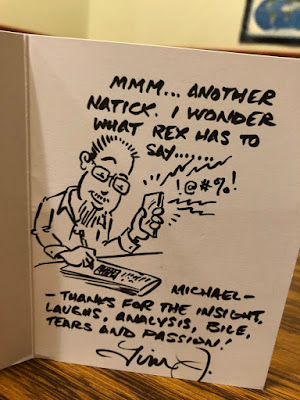 MMM... ANOTHER
NATICK. I WONDER
WHAT REX HAS TO
SAY.....
!@#%!
MICHAEL-
-THANKS FOR THE INSIGHT,
LAUGHS, ANALYSIS, BILE,
TEARS AND PASSION!